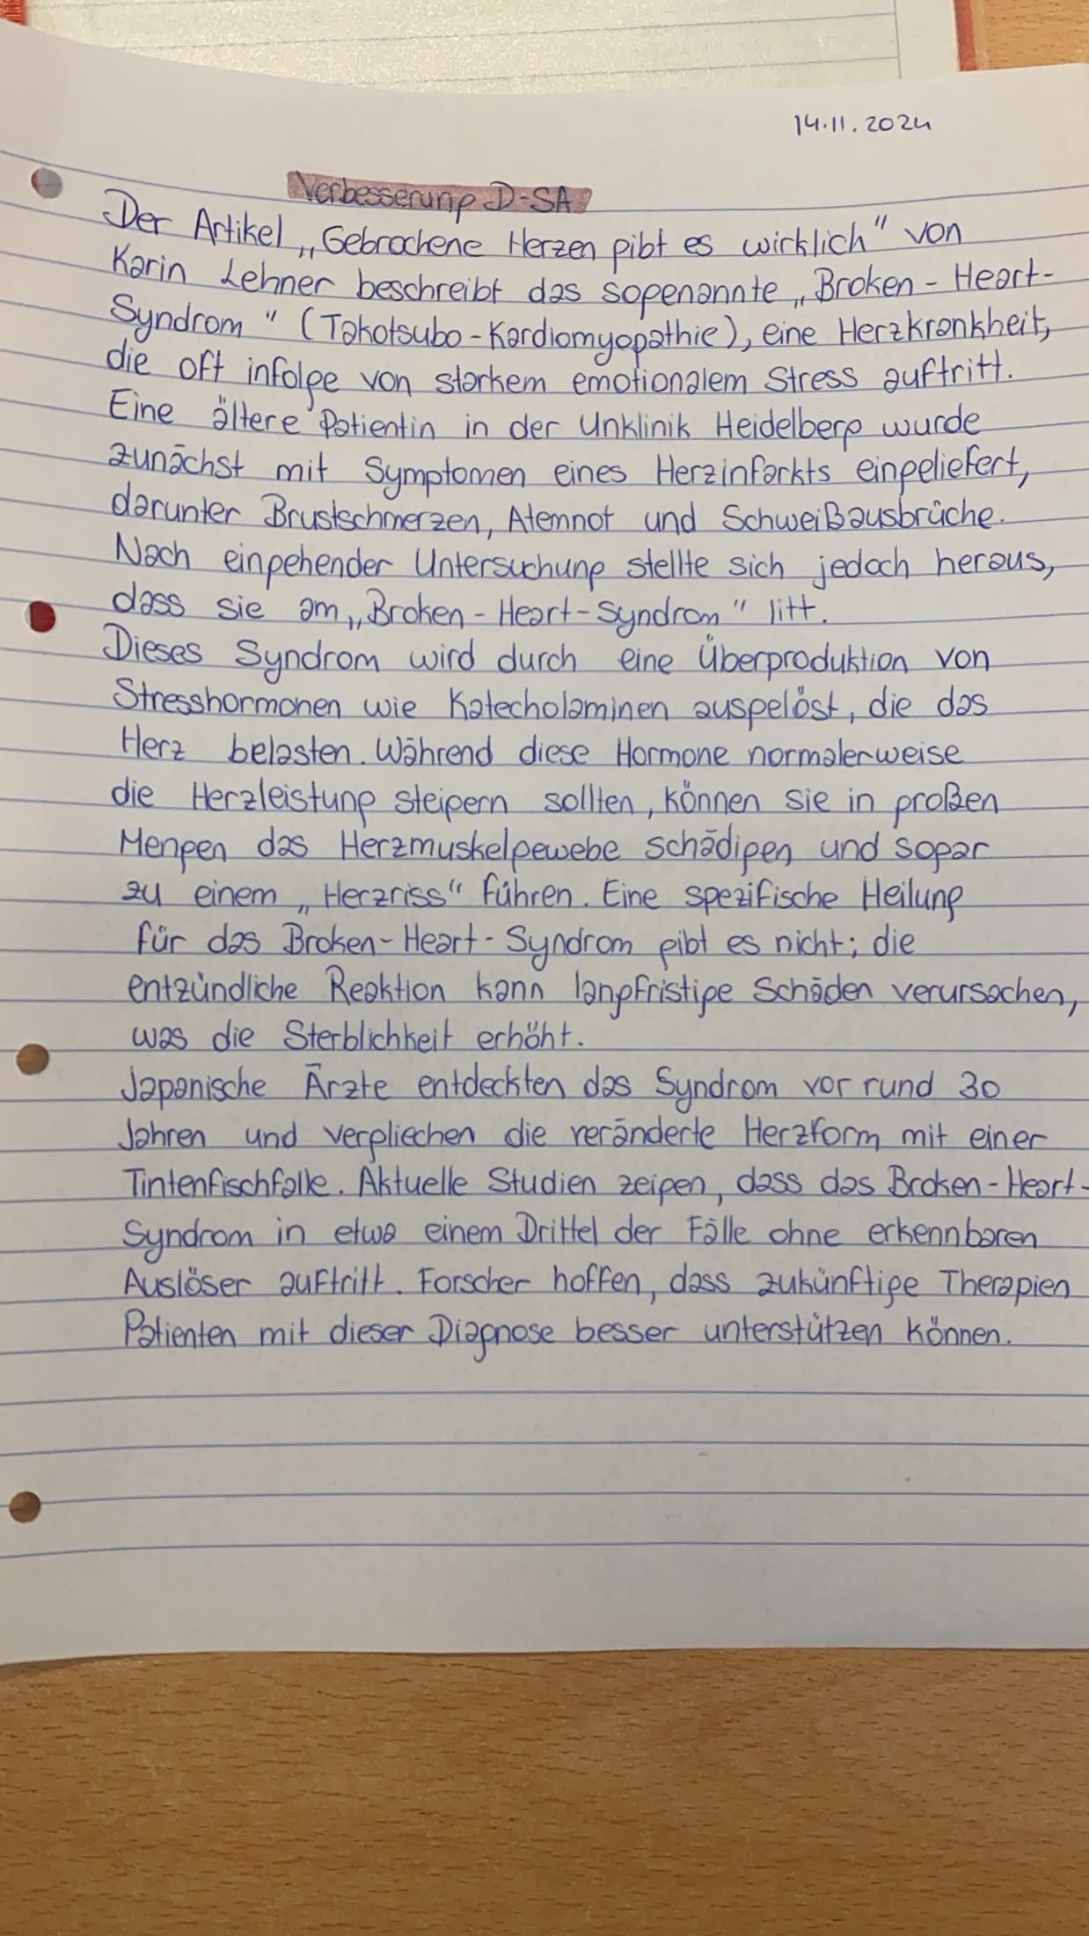 14.11.2024
Verbesserung D-SA
Der Artikel „Gebrochene Herzen gibt es wirklich" von
Karin Lehner beschreibt das sogenannte „Broken-Heart-
Syndrom" (Takotsubo-Kardiomyopathie), eine Herzkrankheit,
die oft infolge von starkem emotionalem Stress auftritt.
Eine ältere Patientin in der Unklinik Heidelberg wurde
zunächst mit Symptomen eines Herzinfarkts eingeliefert,
darunter Brustschmerzen, Atemnot und Schweißausbrüche.
Nach eingehender Untersuchung stellte sich jedoch heraus,
dass sie am „Broken-Heart-Syndrom" litt.
Dieses Syndrom wird durch eine Überproduktion von
Stresshormonen wie Katecholaminen ausgelöst, die das
Herz belasten. Während diese Hormone normalerweise
die Herzleistung steigern sollten, können sie in großen
Mengen das Herzmuskelgewebe schädigen und sogar
zu einem „Herzriss" führen. Eine spezifische Heilung
für das Broken-Heart-Syndrom gibt es nicht; die
entzündliche Reaktion kann langfristige Schäden verursachen,
was die Sterblichkeit erhöht.
Japanische Ärzte entdeckten das Syndrom vor rund 30
Jahren und vergliechen die veränderte Herzform mit einer
Tintenfischfalle. Aktuelle Studien zeigen, dass das Broken-Heart-
Syndrom in etwa einem Drittel der Fälle ohne erkennbaren
Auslöser auftritt. Forscher hoffen, dass zukünftige Therapien
Patienten mit dieser Diagnose besser unterstützen können.